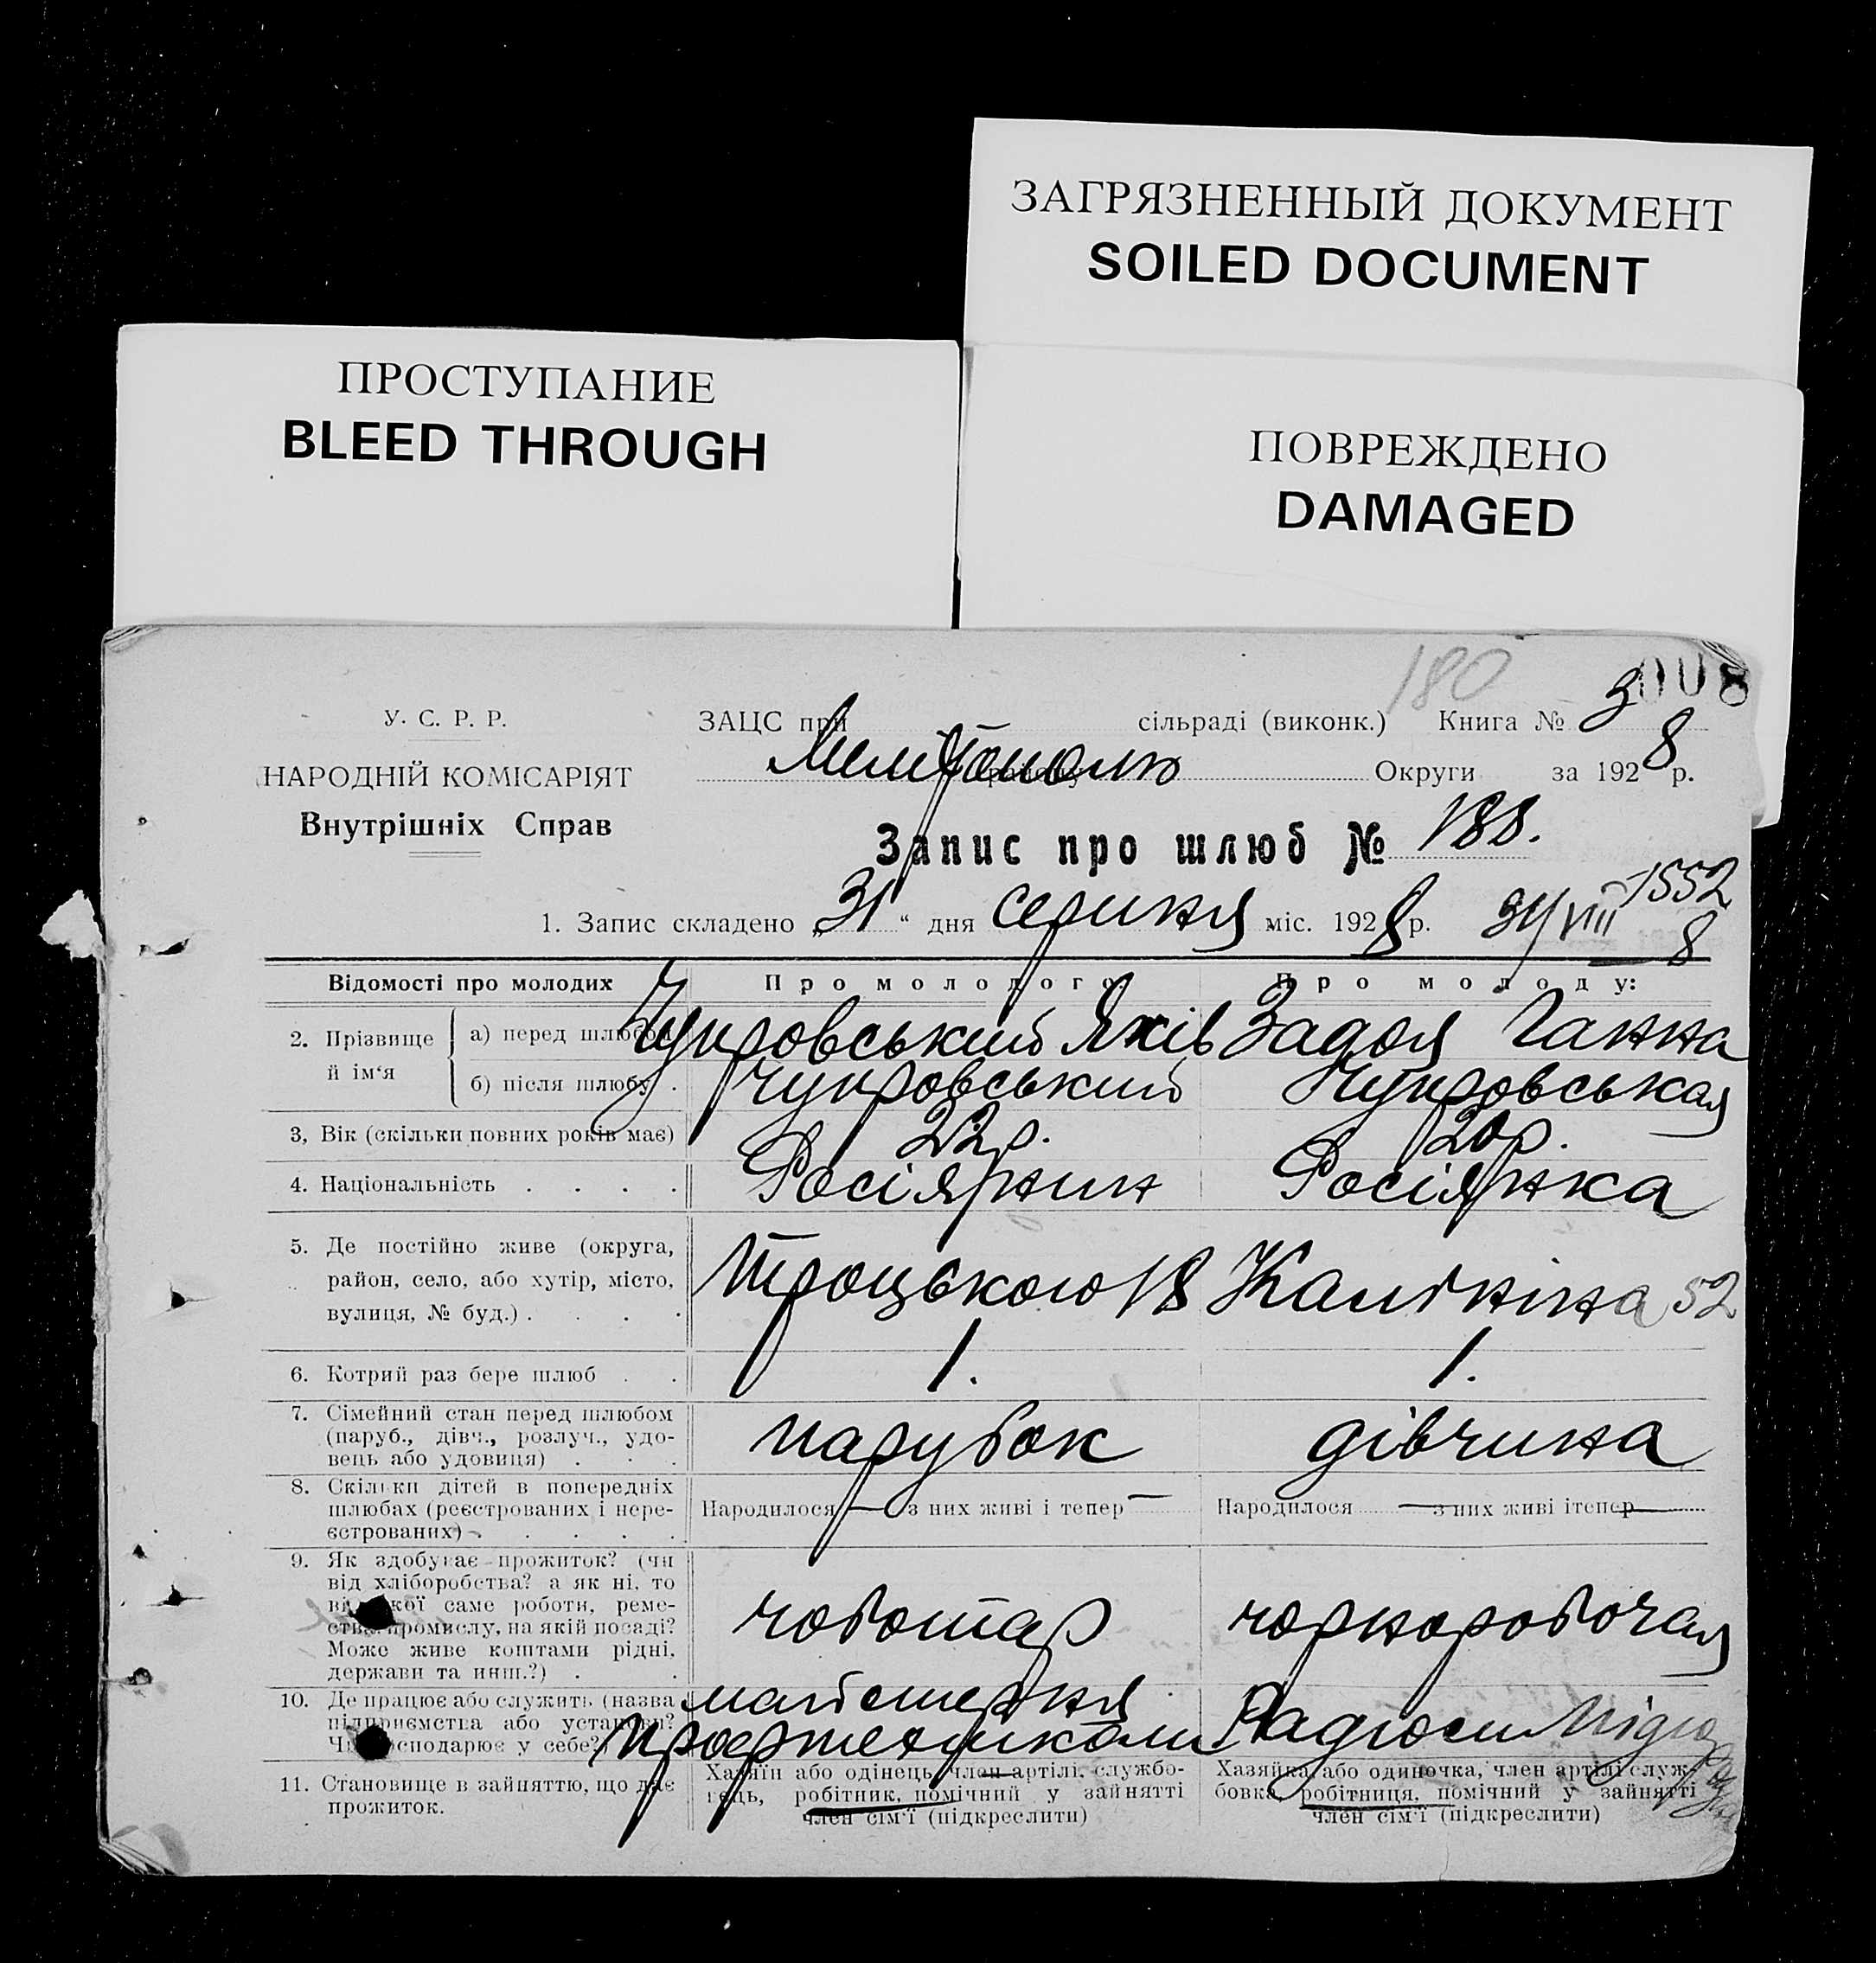 ЗАГРЯЗНЕННЫЙ ДОКУМЕНТ
SOILED DOCUMENT
ПРОСТУПАНИЕ
BLEED THROUGH
ПОВРЕЖДЕНО
DAMAGED
180
008
У. С. Р. Р.
НАРОДНІЙ КОМІСАРІЯТ
Внутрішніх Справ
ЗАЦС при сільраді (виконк.) Книга № 3
Округи за 1928 р.
Запис про шлюб № 188.
1552
1. Запис складено „31“ дня серпня міс. 1928 р. 31/VIII 8
Відомості про молодих Про молодого: Про молоду:
2. Прізвище й ім‘я
а) перед шлюбом Чупровський Яків Задоя Ганна
б) після шлюбу . Чупровський Чупровськая
3, Вік (скільки повних років має) 22 р. 20 р.
4. Національність . . . . Росіянин Росіянка
5. Де постійно живе (округа,
район, село, або хутір, місто,
вулиця, № буд.) . . . .
Троцького 18 Калініна 52
6. Котрий раз бере шлюб . . 1. 1.
7. Сімейний стан перед шлюбом
(паруб., дівч., розлуч., удо-
вець або удовиця) . . .
парубок дівчина
8. Скільки дітей в попередніх
шлюбах (реєстрованих і нере-
єстрованих) . . . . .
Народилося — з них живі і тепер —
Народилося — з них живі ітепер —
9. Як здобуває прожиток? (чи
від хліборобства? а як ні, то
від якої саме роботи, реме-
ства, промислу, на якій посаді?
Може живе коштами рідні,
держави та инш.?) . .
чоботар чорноробочая
10. Де працює або служить (назва
підприємства або установи?
Чи господарює у себе?)
майстерня
11. Становище в зайняттю, що дає
прожиток.
Хазяїн або одінець, член артілі, службо-
вець, робітник, помічний у зайнятті
член сім‘ї (підкреслити)
Хазяйка або одиночка, член артілі служ-
бовка, робітниця, помічний у зайнятті
член сім‘ї (підкреслити)